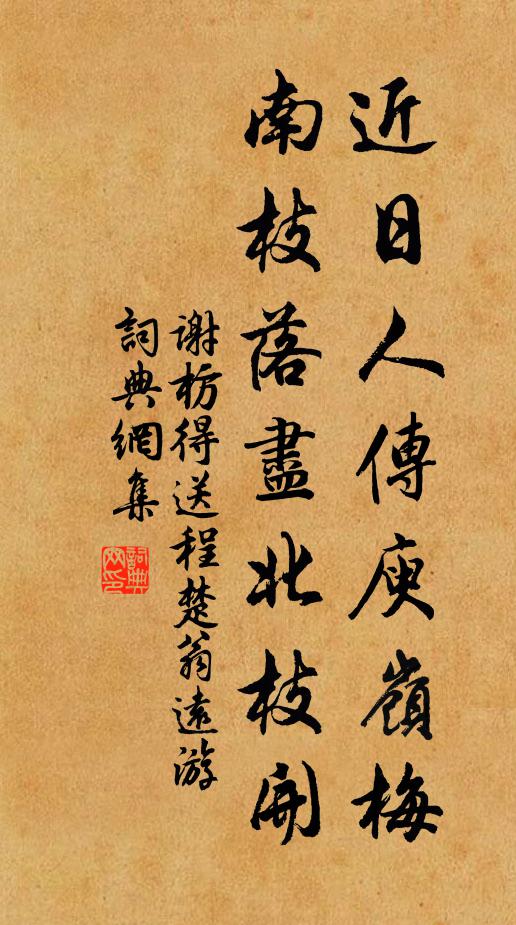 近日人傳庾嶺梅
南枝落盡北枝開
謝枋得送程楚翁遠游
詞典網集
詞典網印